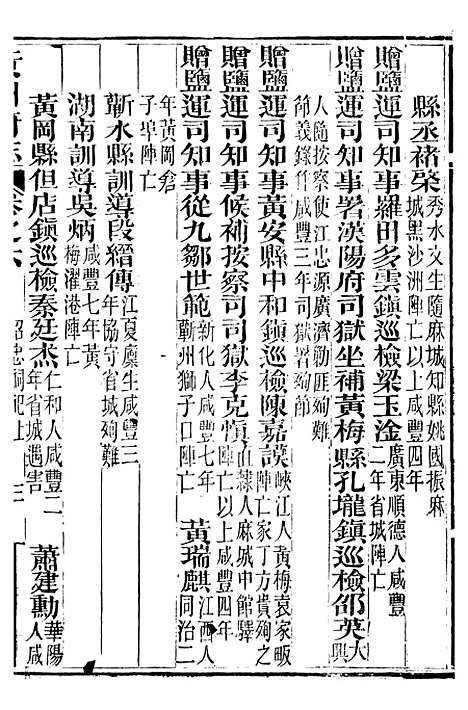 縣丞褚榮 秀水文生隨麻城知縣姚國振麻城黑沙洲陣亡以上咸豐四年
贈鹽運司知事羅田多雲鎮巡檢梁玉淦 廣東順德人咸豐二年省城陣亡
贈鹽運司知事署漢陽府司獄坐補黃梅縣孔壠鎮巡檢邵英 大興
人隨按察使江忠源廣濟勦匪殉難節義錄作咸豐三年司獄署殉節
贈鹽運司知事黃安縣中和鎮巡檢陳嘉謨 峽江人黃梅袁家畈陣亡家丁方貴殉之
贈鹽運司知事候補按察司司獄李克慎 直隸人麻城中館驛陣亡以上咸豐四年
贈鹽運司知事從九鄒世範 新化人咸豐七年蘄州獅子口陣亡 黃瑞麒 江西人同治二
年黃岡倉子埠陣亡
蘄水縣訓導段縉傳 江夏廩生咸豐三年協守省城殉難
湖南訓導吳炳 咸豐七年黃梅濯港陣亡
黃岡縣但店鎮巡檢秦廷杰 仁和人咸豐二年省城遇害 蕭建勳 華陽人咸